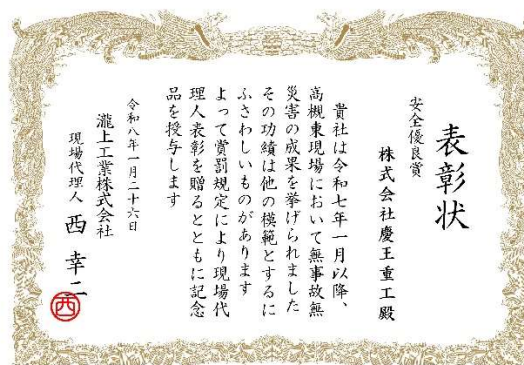 表彰状
安全優良賞
株式会社慶王重工殿
貴社は令和七年一月以降、
高槻東現場において無事故無
災害の成果を挙げられました
その功績は他の模範とするに
ふさわしいものがあります
よって賞罰規定により現場代
理人表彰を贈るとともに記念
品を授与します
令和八年一月二十六日
瀧上工業株式会社
現場代理人 西 幸二
西